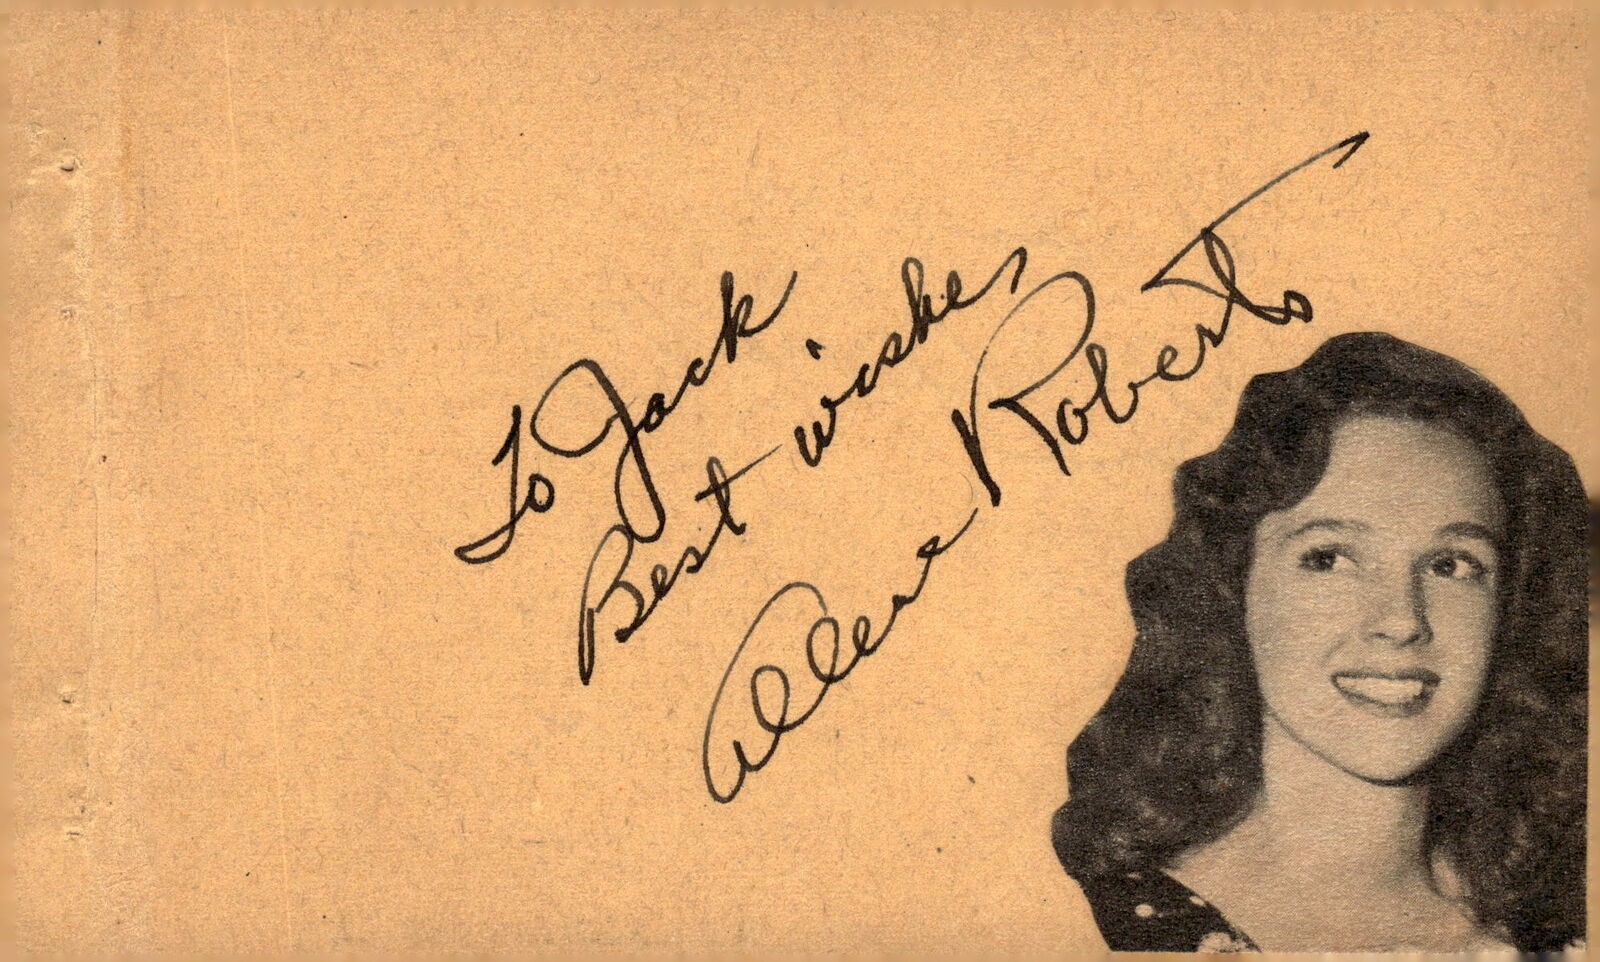 To Jack
Best wishes
Allene Roberts